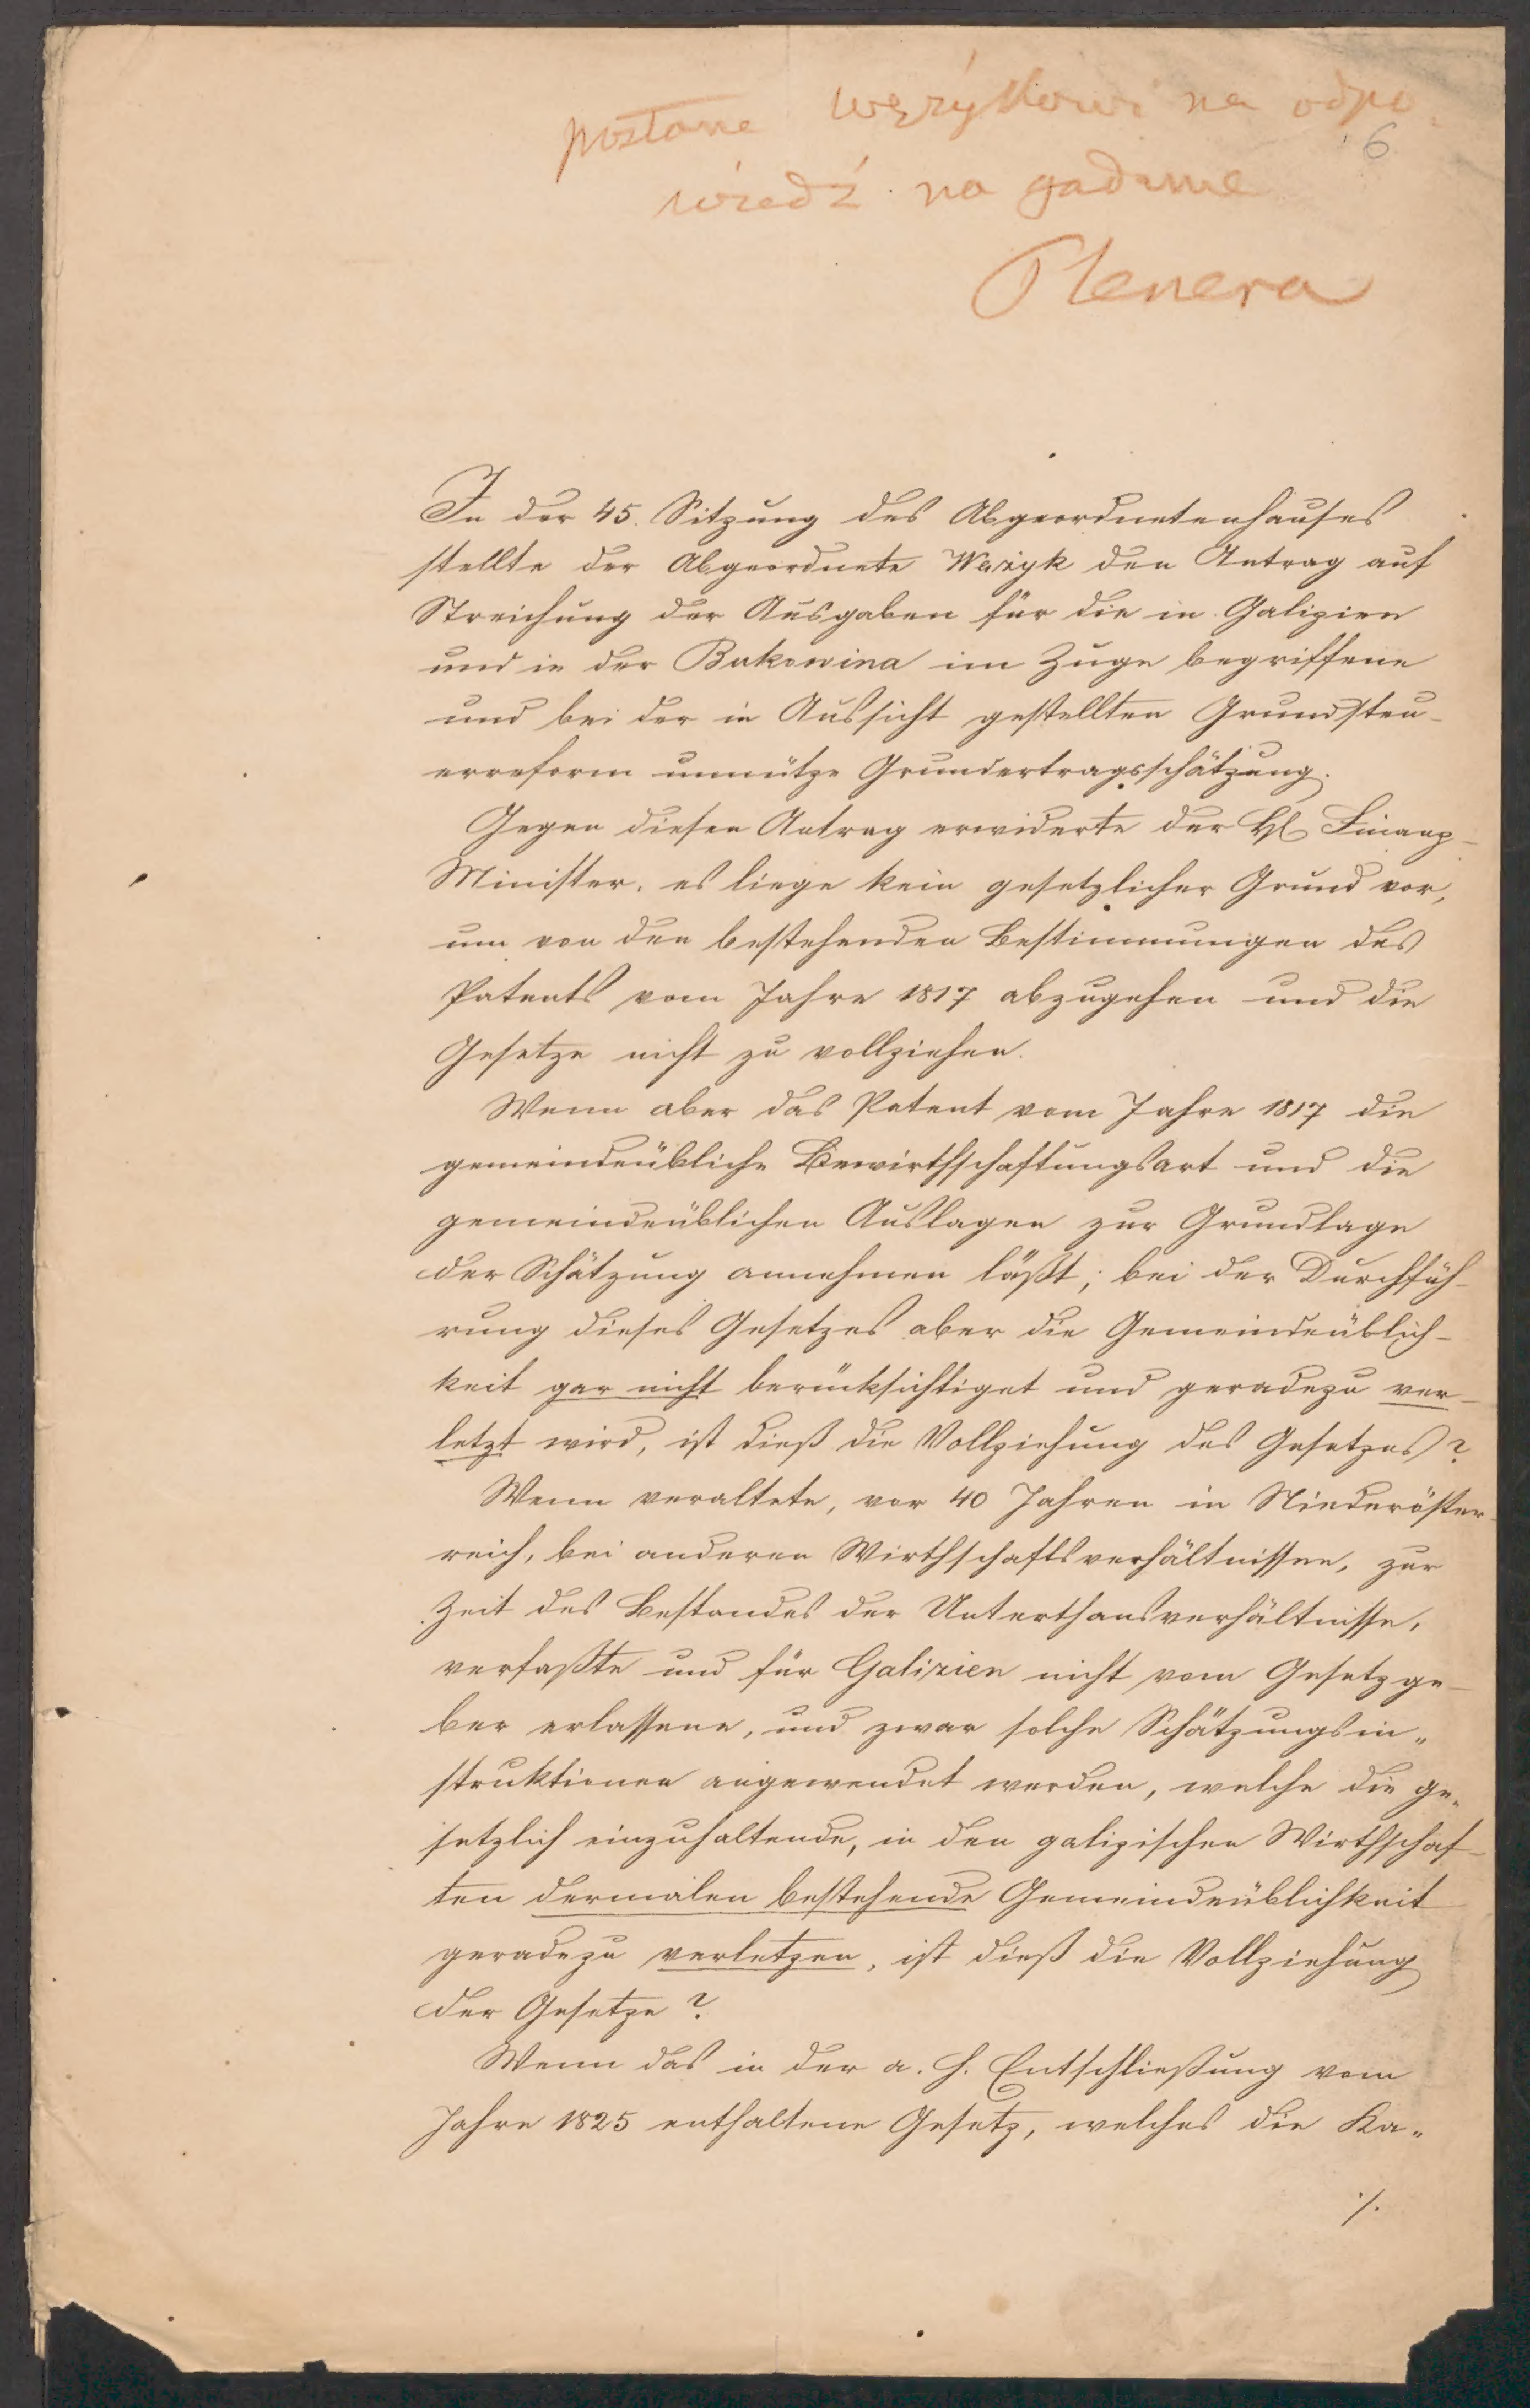 posłane Wężykowi na odpo
6
wiedź na gadanie
Plenera
In der 45. Sitzung des Abgeordnetenhauses
stellte der Abgeordnete Wezyk den Antrag auf
Streichung der Ausgaben für die in Galizien
und in der Bukowina im Zuge begriffene
und bei der in Aussicht gestellten Grundsteu-
erreform unnütze Grundertragsschätzung.
Gegen diesen Antrag erwiderte der H. Finanz-
Minister, es liege kein gesetzlicher Grund vor,
um von den bestehenden Bestimmungen des
Patents vom Jahre 1817 abzugehen und die
Gesetze nicht zu vollziehen.
Wenn aber das Patent vom Jahre 1817 die
gemeindeübliche Bewirthschaftungsart und die
gemeindeüblichen Auslagen zur Grundlage
der Schätzung annehmen läßt; bei der Durchfüh-
rung dieses Gesetzes aber die Gemeindeüblich-
keit gar nicht berücksichtiget und geradezu ver-
letzt wird, ist dieß die Vollziehung des Gesetzes?
Wenn veraltete, vor 40 Jahren in Niederöster-
reich, bei anderen Wirthschaftsverhältnissen, zur
Zeit des Bestandes der Unterthansverhältnisse,
verfaßte und für Galizien nicht vom Gesetzge-
ber erlassene, und zwar solche Schätzungsin„
struktionen angewendet werden, welche die ge„
setzlich einzuhaltende, in den galizischen Wirthschaf-
ten dermalen bestehende Gemeindeüblichkeit
geradezu verletzen, ist dieß die Vollziehung
der Gesetze?
Wenn das in der a. h. Entschließung vom
Jahre 1825 enthaltene Gesetz, welches die Ka„
./.